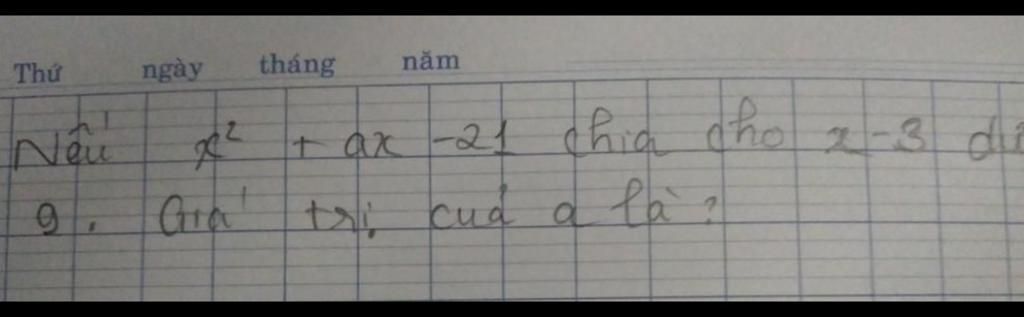 Thứ ngày tháng năm
Nếu x² + ax -21 chia cho x-3 dư
9. Giá trị của a là?